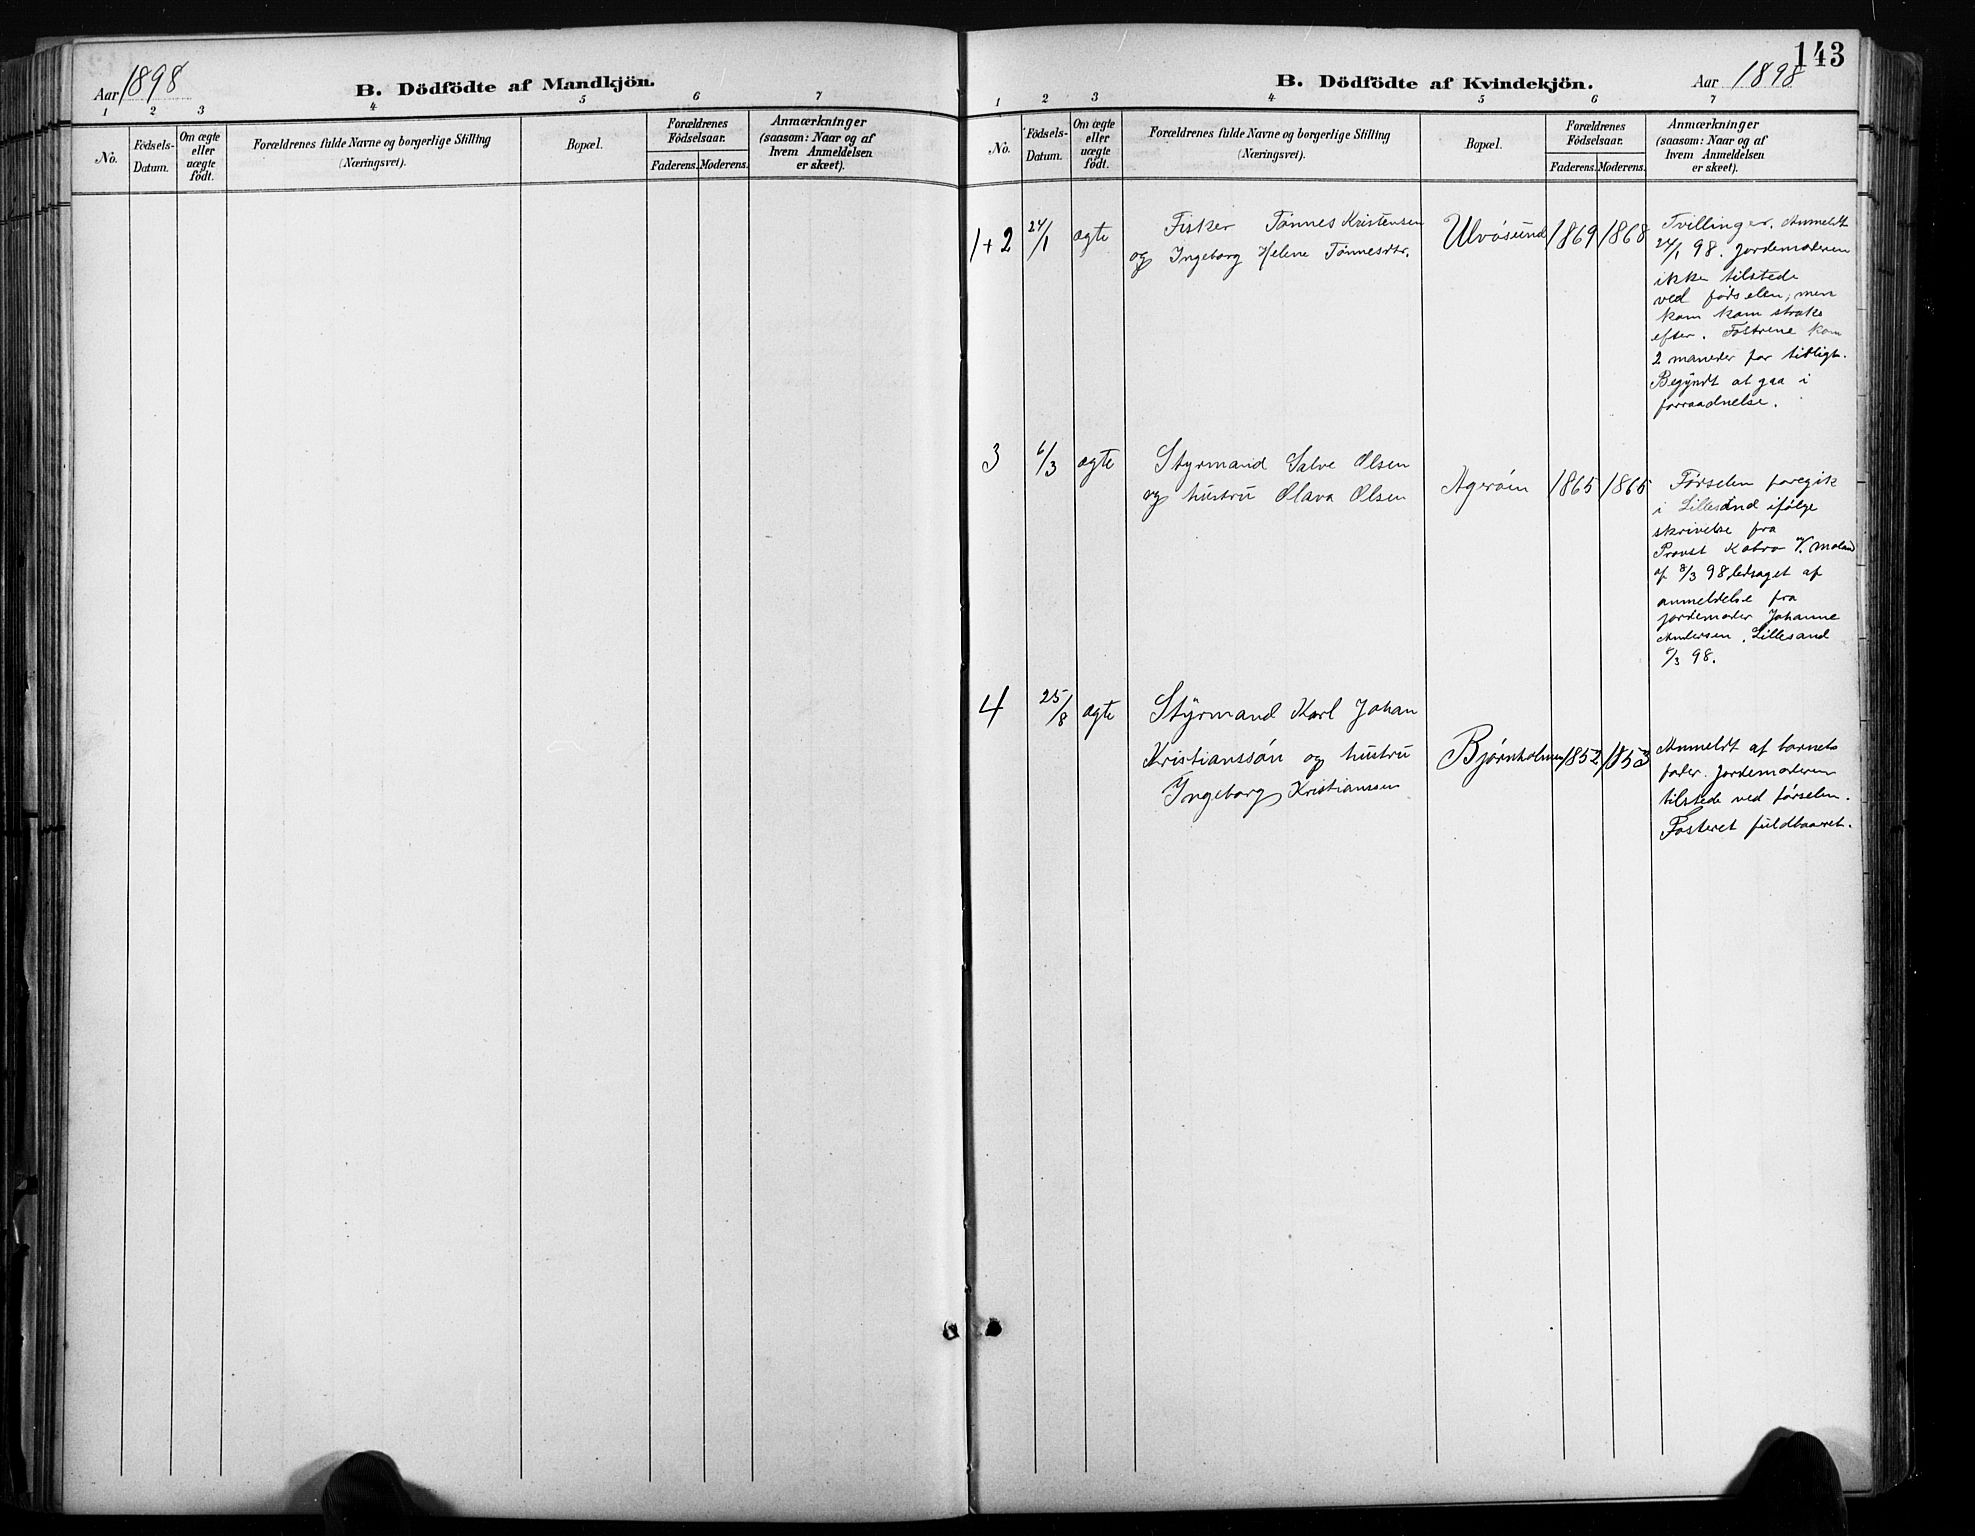 Aar 1898
B. Dödfödte af Mandkjön.
1 2 3 4 5 6 7
No.
Födsels-
Datum.
Om ægte
eller
uægte
født.
Forældrenes fulde Navne og borgerlige Stilling
(Næringsvei).
Bopæl.
Forældrenes
Födselsaar.
Faderens. Moderens.
Anmærkninger
(saasom: Naar og af
hvem Anmeldelsen
er skeet).
143
B. Dödfödte af Kvindekjön.
Aar 1898
1 2 3 4 5 6 7
No.
Födsels-
Datum.
Om ægte
eller
uægte
født.
Forældrenes fulde Navne og borgerlige Stilling
(Næringsvei).
Bopæl.
Forældrenes
Födselsaar.
Faderens. Moderens.
Anmærkninger
(saasom: Naar og af
hvem Anmeldelsen
er skeet).
1+2 24/1 ægte
Fisker Tønnes Kristensen
og Ingeborg Helene Tønnesdtr.
Ulvøsund 1869 1868
Tvillinger. Anmeldt
24/1 98. Jordemoderen
ikke tilstede
ved fødselen, men
kom kom straks
efter. Fostrene kom
2 maneder for tidligt.
Begyndt at gaa i
forraadnelse.
3 6/3 ægte
Styrmand Salve Olsen
og hustru Olava Olsen
Agerøen 1865 1865
Førselen foregik
i Lillesand ifølge
skrivelse fra
Provst V. Moland
af 8/3 98 ledsaget af
anmeldelse fra
jordemoder Johanne
Andersen, Lillesand
/3 98.
4 25/8 ægte
Styrmand Karl Johan
Kristianssøn og hustru
Ingeborg Kristianssen
Bjørnholmen 1852 1853
Anmeldt af barnets
fader. Jordemoderen
tilstede ved førselen.
Fosteret fuldbaaret.